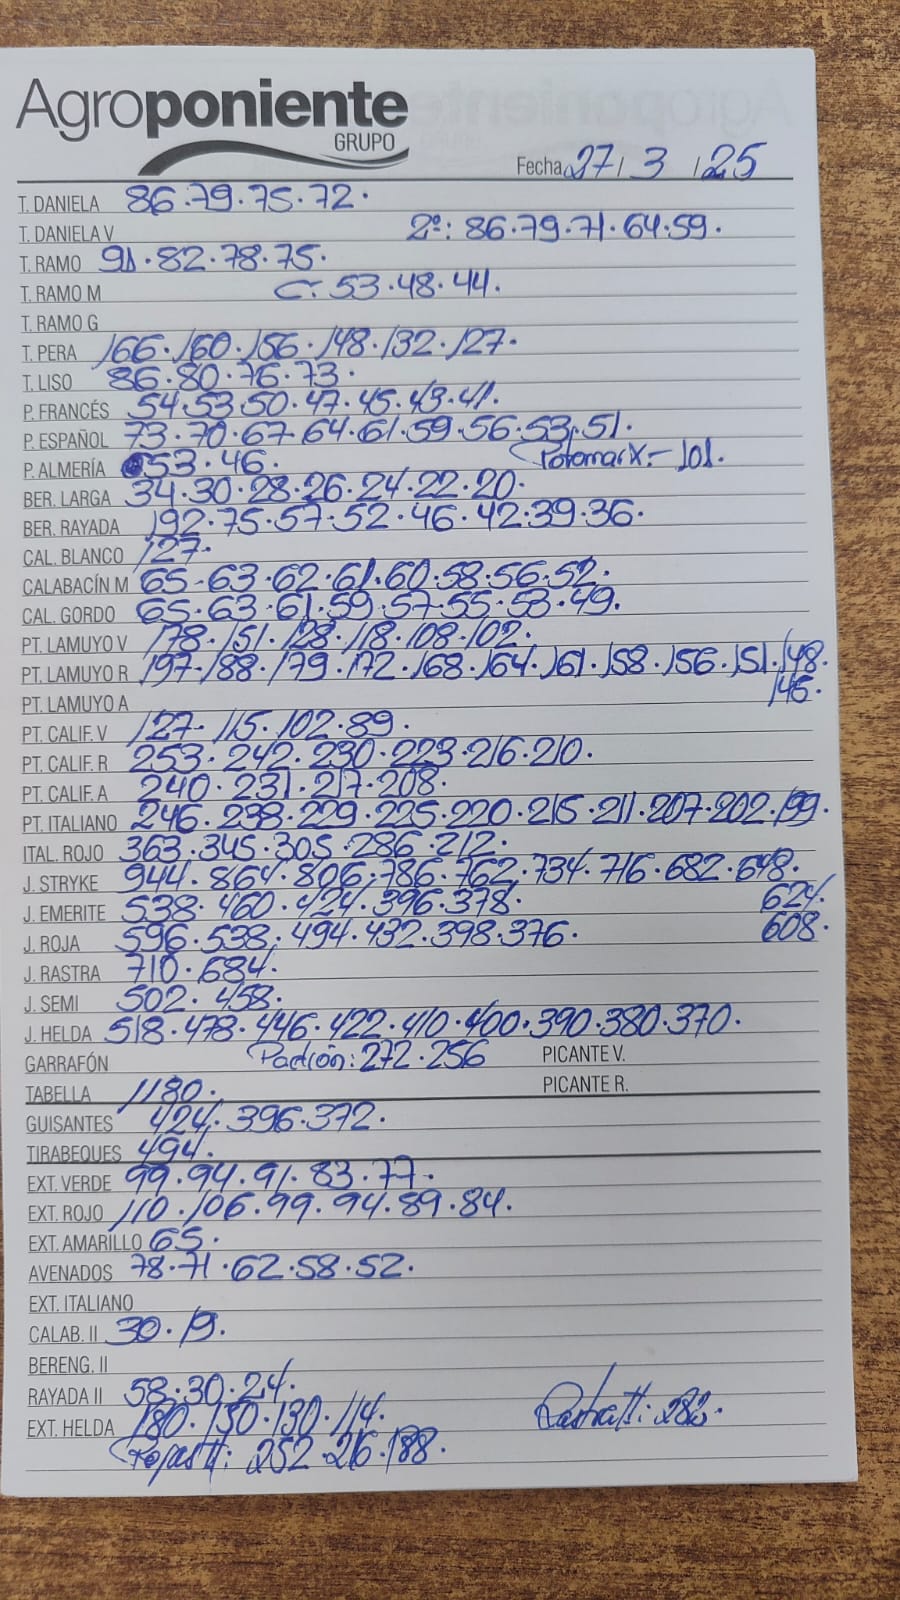 Agroponiente
GRUPO
Fecha 27 / 3 / 25
T. DANIELA 86.79.75.72.
T. DANIELA V 2ª: 86.79.71.64.59.
T. RAMO 91.82.78.75.
T. RAMO M C: 53.48.44.
T. RAMO G
T. PERA 166.160.156.148.132.127.
T. LISO 86.80.76.73.
P. FRANCÉS 54.53.50.47.45.43.41.
P. ESPAÑOL 73.70.67.64.61.59.56.53.51.
P. ALMERÍA 53.46. PotomarX.- 101.
BER. LARGA 34.30.28.26.24.22.20.
BER. RAYADA 192.75.57.52.46.42.39.36.
CAL. BLANCO 127.
CALABACÍN M 65.63.62.61.60.58.56.52.
CAL. GORDO 65.63.61.59.57.55.53.49.
PT. LAMUYO V 178.151.128.118.108.102.
PT. LAMUYO R 197.188.179.172.168.164.161.158.156.151.148.
PT. LAMUYO A 146.
PT. CALIF. V 127.115.102.89.
PT. CALIF. R 253.242.230.223.216.210.
PT. CALIF. A 240.231.217.208.
PT. ITALIANO 246.238.229.225.220.215.211.207.202.199.
ITAL. ROJO 363.345.305.286.212.
J. STRYKE 944.864.806.786.762.734.716.682.648.
J. EMERITE 538.460.424.396.378. 624.
J. ROJA 596.538.494.432.398.376. 608.
J. RASTRA 710.684.
J. SEMI 502.458.
J. HELDA 518.478.446.422.410.400.390.380.370.
GARRAFÓN 272.256 PICANTE V.
TABELLA 1180. PICANTE R.
GUISANTES 424.396.372.
TIRABEQUES 494.
EXT. VERDE 99.94.91.83.77.
EXT. ROJO 110.106.99.94.89.84.
EXT. AMARILLO 65.
AVENADOS 78.71.62.58.52.
EXT. ITALIANO
CALAB. II 30.19.
BERENG. II
RAYADA II 58.30.24.
EXT. HELDA 180.150.130.114. Rastra II: 282.
Rojas II: 252.216.188.